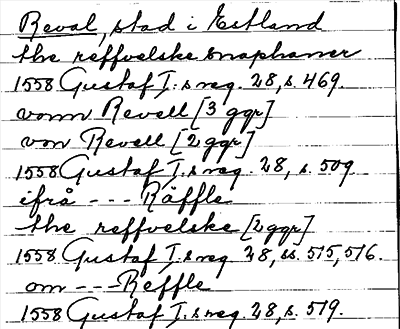 Reval, stad i Estland
the reffvelske snaphaner
1558 Gustaf I:s reg. 28, s. 469.
vonn Revell [3 ggr]
von Revell [2 ggr]
1558 Gustaf I:s reg. 28, s. 509
ifrå - - - Räffle
the reffvelske [2 ggr]
1558 Gustaf I:s reg. 28, ss. 575, 576.
om - - - Reffle
1558 Gustaf I:s reg. 28, s. 579.